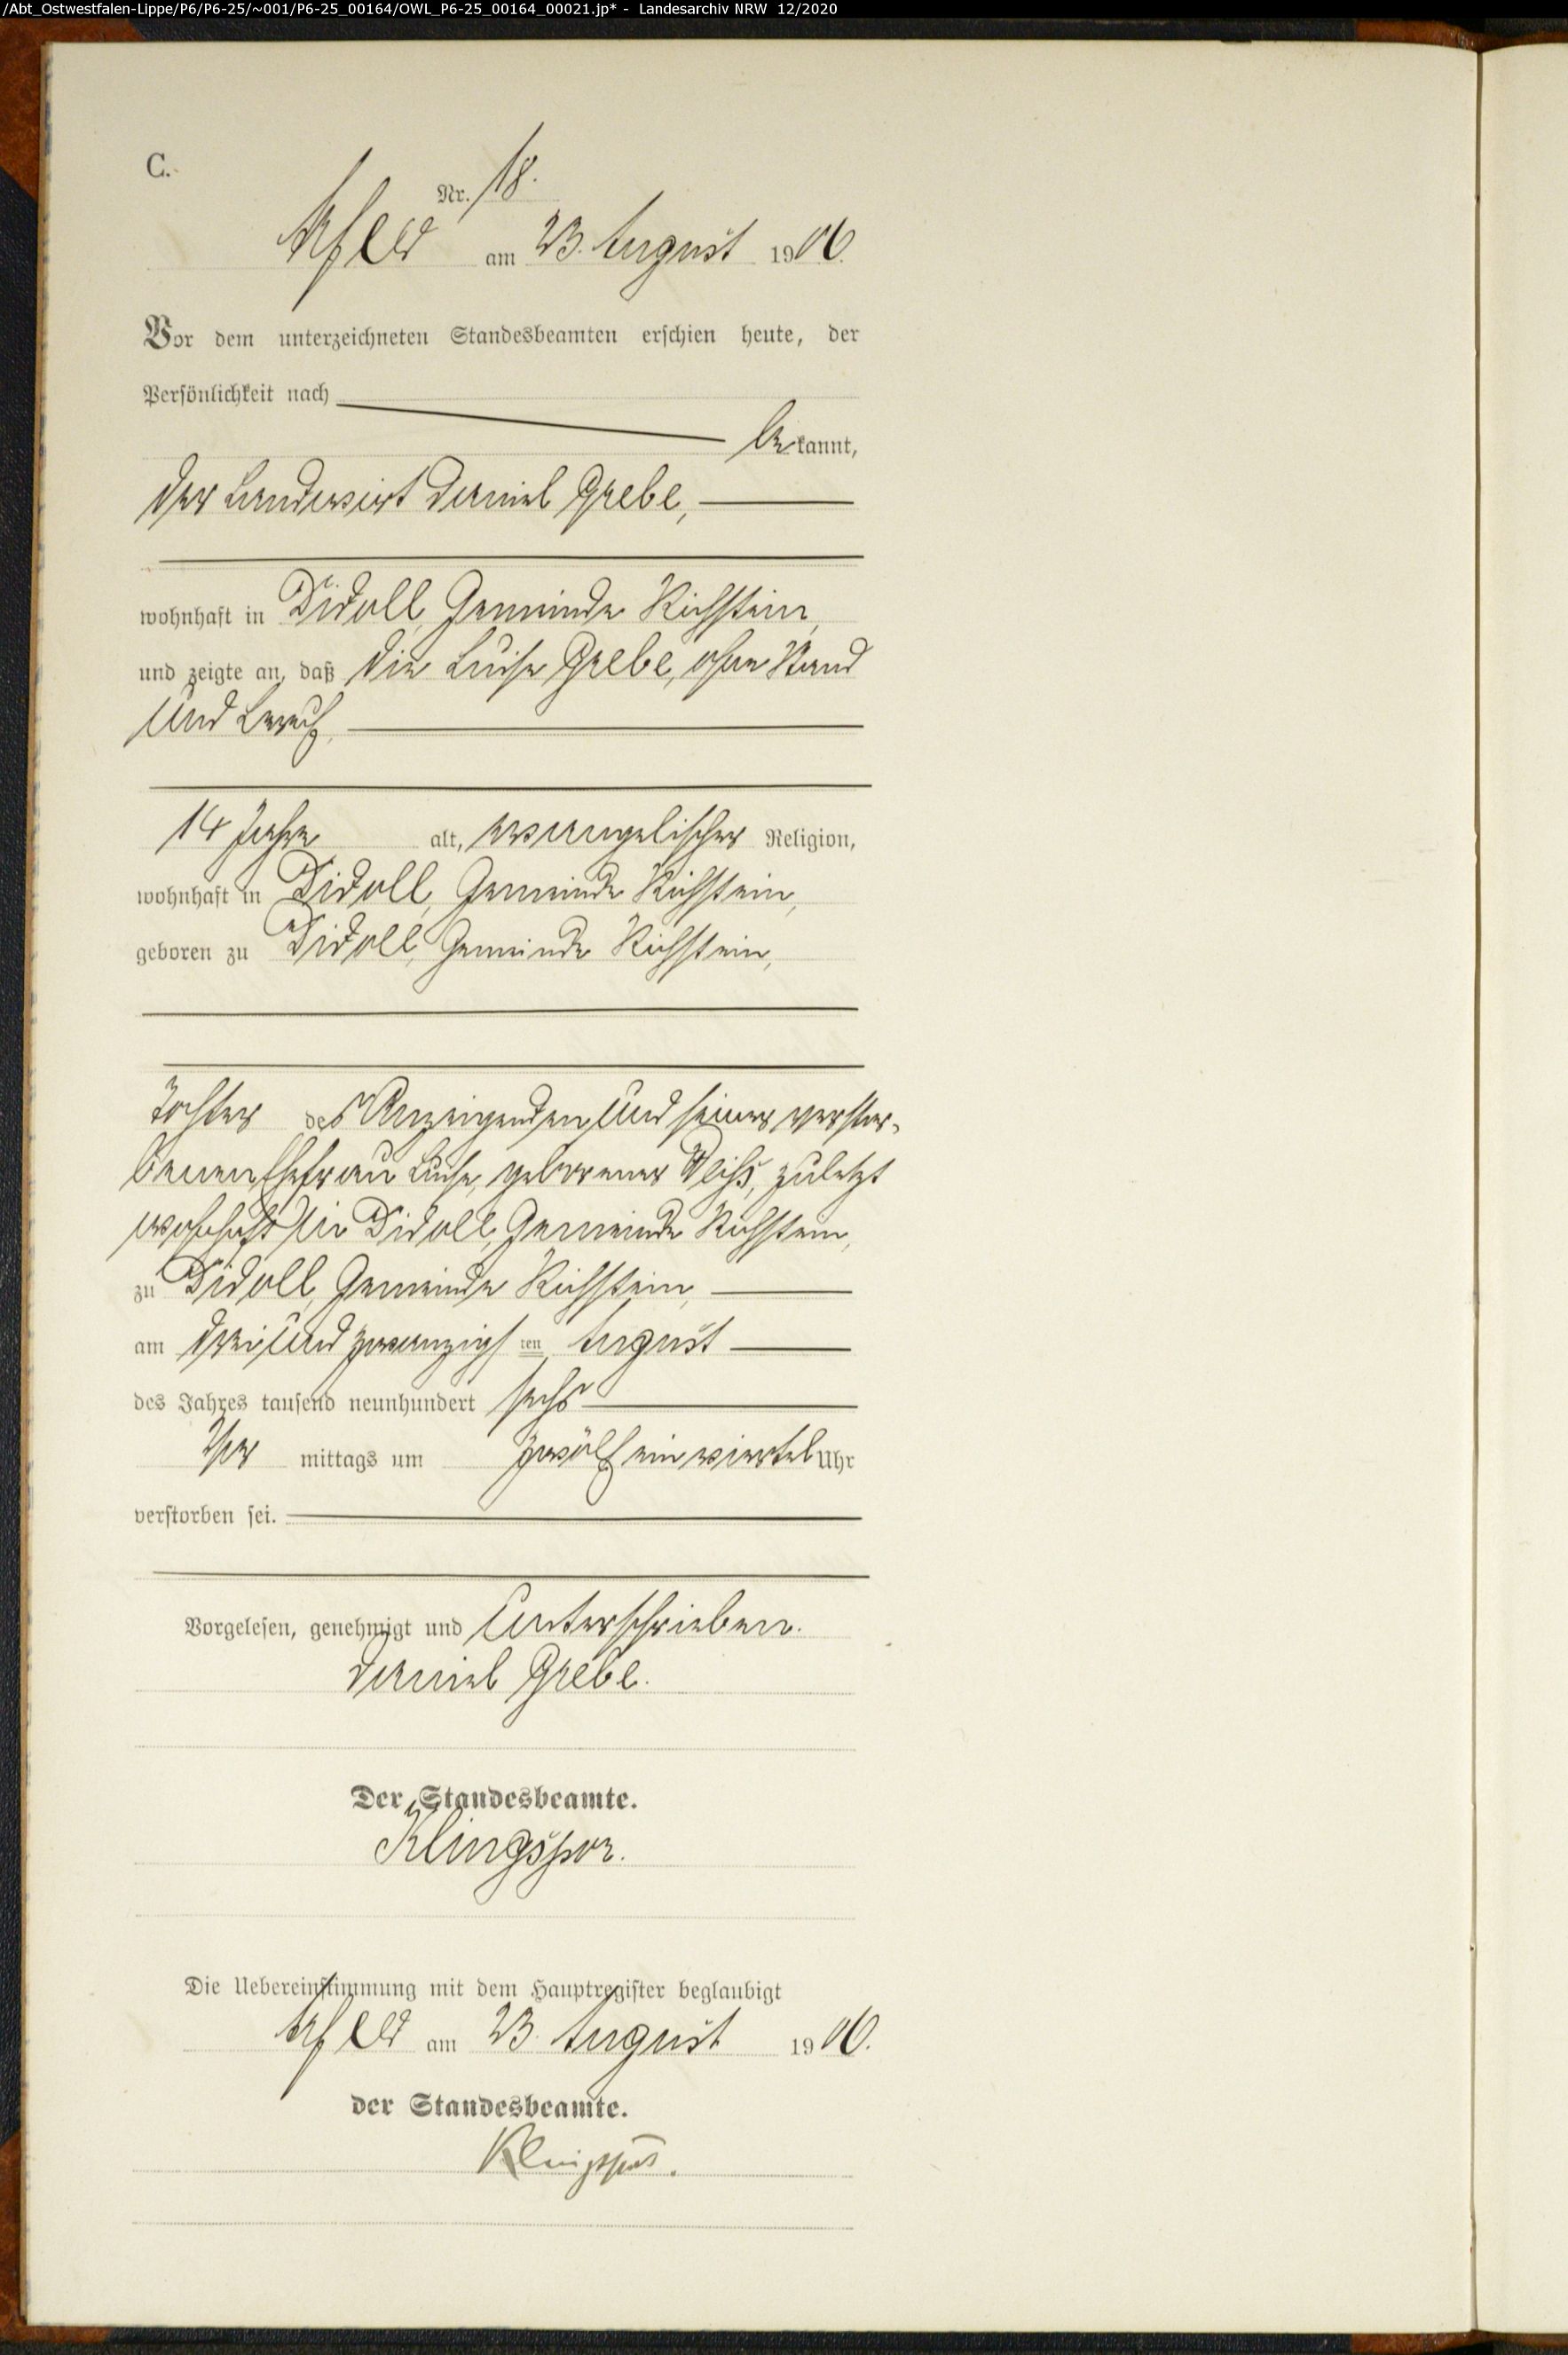 /Abt_Ostwestfalen-Lippe/P6/P6-25/~001/P6-25_00164/OWL_P6-25_00164_00021.jp* - Landesarchiv NRW 12/2020
C.
Nr. 18.
Arfeld am 23. August 1906.
Vor dem unterzeichneten Standesbeamten erschien heute, der
Persönlichkeit nach
bekannt,
der Landwirt Daniel Grebe,
wohnhaft in Didoll, Gemeinde Richstein,
und zeigte an, daß die Luise Grebe, ohne Stand
und Beruf,
14 Jahre alt, evangelischer Religion,
wohnhaft in Didoll, Gemeinde Richstein,
geboren zu Didoll, Gemeinde Richstein,
Tochter des Anzeigenden und seiner verstor-
benen Ehefrau Luise, geborener, zuletzt
wohnhaft in Didoll, Gemeinde Richstein,
zu Didoll, Gemeinde Richstein,
am drei und zwanzigsten August
des Jahres tausend neunhundert sechs
Vor mittags um zwölf ein viertel Uhr
verstorben sei.
Vorgelesen, genehmigt und unterschrieben.
Daniel Grebe.
Der Standesbeamte.
Klingspor.
Die Uebereinstimmung mit dem Hauptregister beglaubigt
Arfeld am 23. August 1906.
der Standesbeamte.
Klingspor.